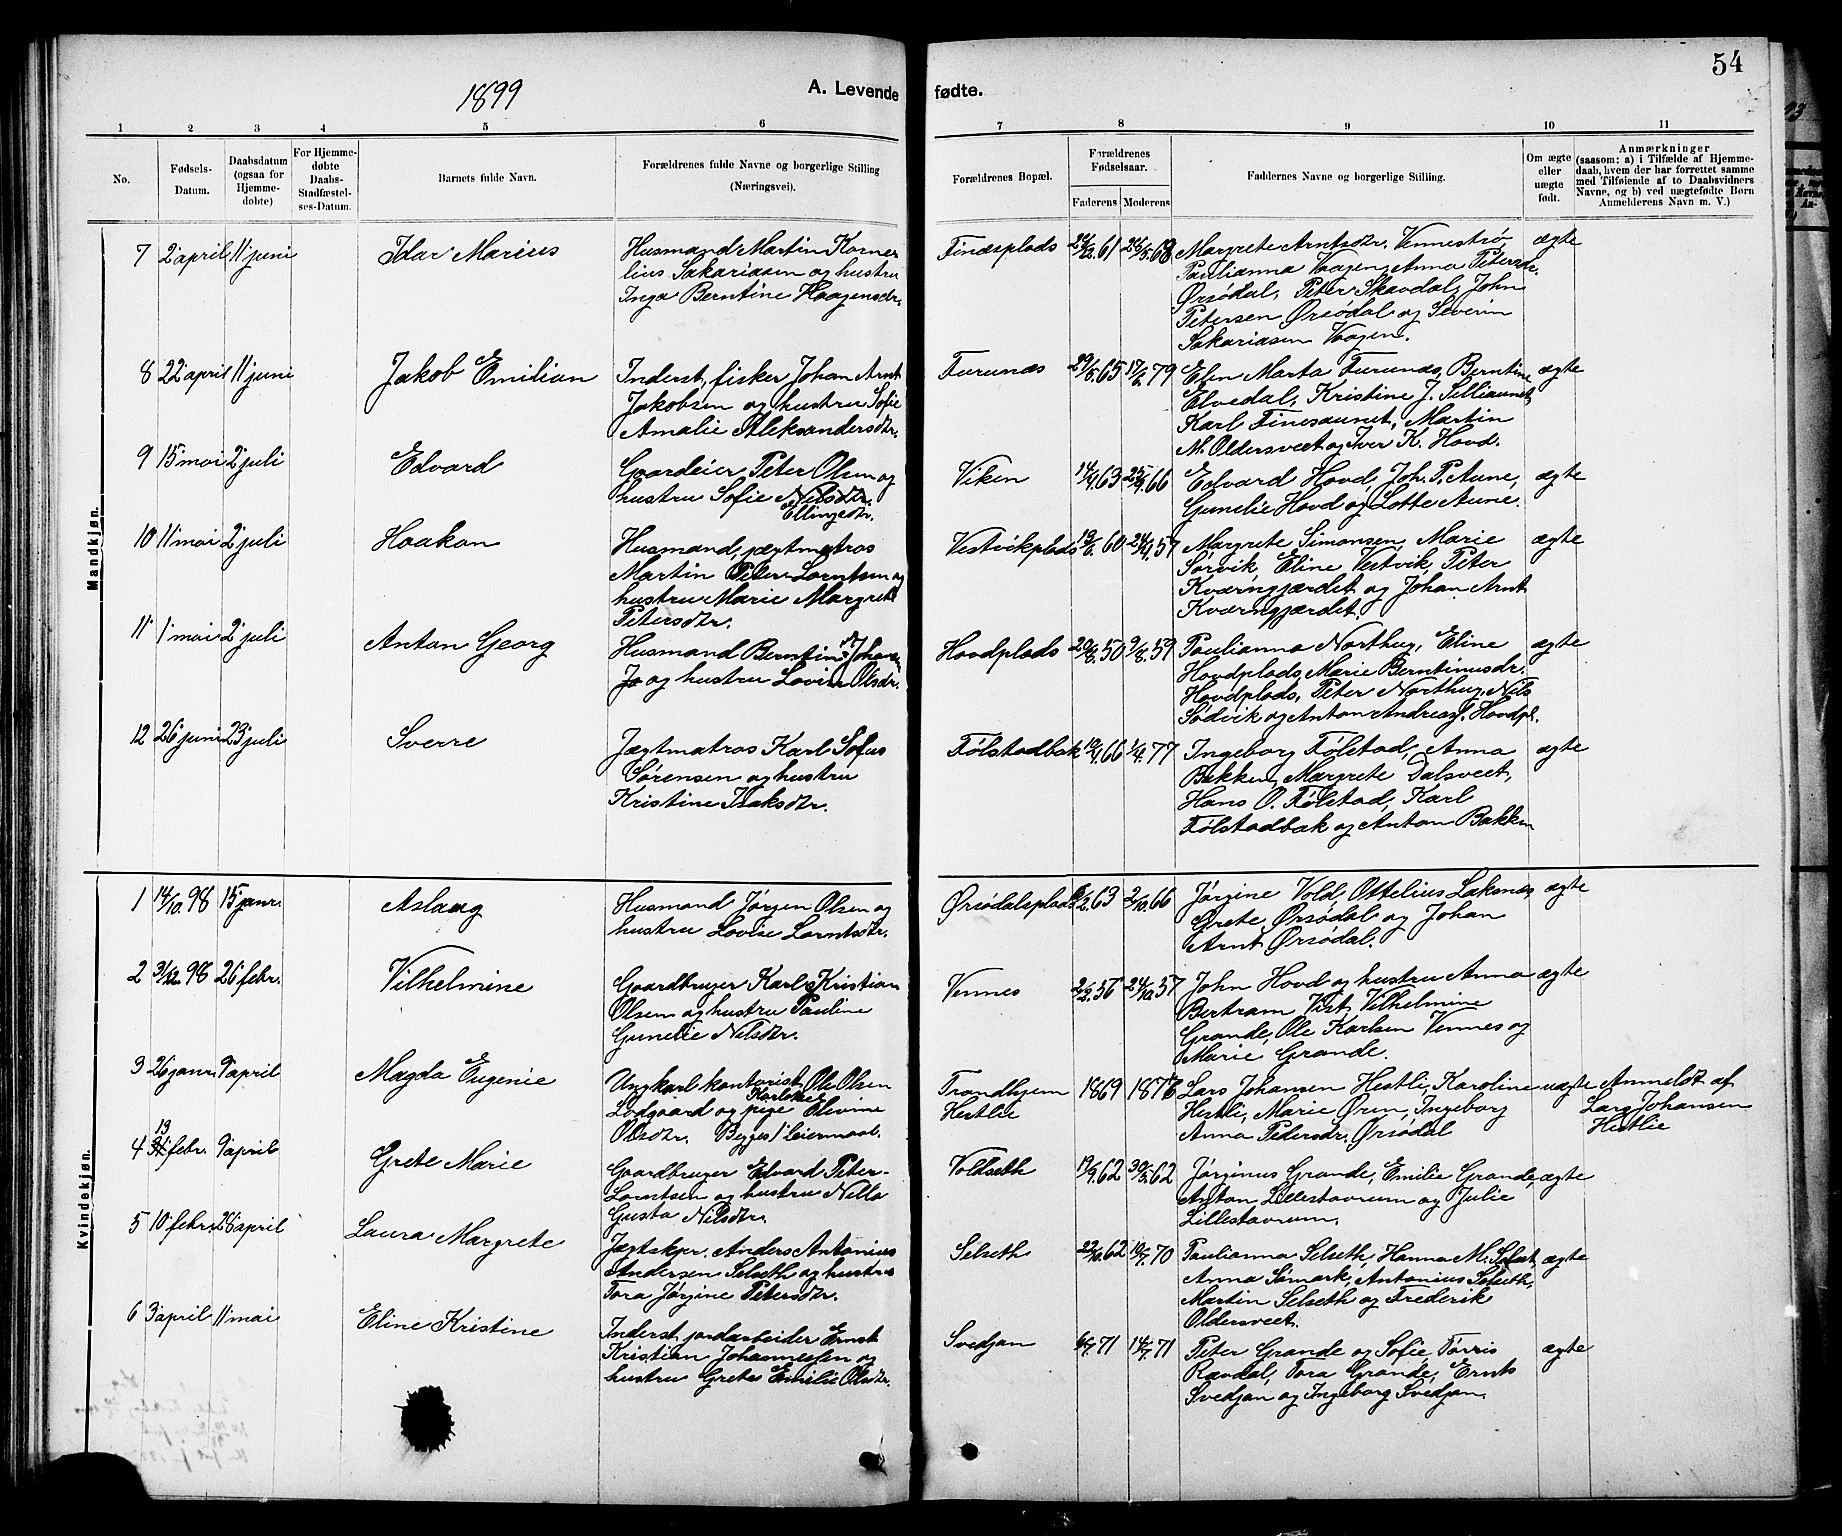 54
1899
A. Levende fødte.
1 2 3 4 5 6 7 8 9 10 11
No.
Fødsels-Datum.
Daabsdatum (ogsaa for Hjemme-døbte)
For Hjemme-døbte Daabs-Stadfæstel-ses-Datum.
Barnets fulde Navn.
Forældrenes fulde Navne og borgerlige Stilling
(Næringsvei).
Forældrenes Bopæl.
Forældrenes Fødselsaar.
Faderens Moderens
Faddernes Navne og borgerlige Stilling.
Om ægte eller uægte født.
Anmærkninger
(saasom: a) i Tilfælde af Hjemme-
daab, hvem der har forrettet samme
med Tilføiende af to Daabsvidners
Navne, og b) ved uægtefødte Børn
Anmelderens Navn m. V.)
Mandkjøn.
7 2 april 11 juni Idar Marius
Husmand Martin Korne-
lius Sakariasen og hustru
Inga Berntine Haagensdr.
Finæsplads 61 68
Margrete Arntsdtr. Vennestrø,
Paulianna Vaagen, Anna Petersdr.
Ørsødal, Peter Skavdal, John
Petersen Ørsødal og Severin
Sakariasen Vaagen.
ægte
8 22 april 11 juni Jakob Emilian
Inderst, fisker Johan Arnt
Jakobsen og hustru Sofie
Amalie Aleksandersdtr.
Furunæs 29/8.65 17/6.79
Elin Marta Furunæs, Berntine
Elvedal, Kristine J. Selliaunet,
Karl Finesaunet, Martin
M. Oldersveet og Iver K. Hovd.
ægte
9 15 mai 2 juli Edvard
Gaardeier Peter Olsen og
hustru Sofie Nilsdtr.
Ellingsdtr.
Viken 14/9.63 25/9.66
Edvard Hovd, Joh. P. Aune,
Gunelie Hovd og Lotte Aune.
ægte
10 11 mai 2 juli Haakon
Husmand, jægtmatros
Martin Peter Lorntsen og
hustru Marie Margrete
Petersdtr.
Vestvikplads 60 57
Margrete Simonsen, Marie
Sørvik, Eline Vestvik, Peter
Kværngjærdet og Johan Arnt
Kværngjærdet.
ægte
11 1 mai 2 juli Anton Georg
Husmand Berntin Johansen
Jo og hustru Lovise Olsdr.
Hovdplads 29/8.50 9/8.59
Paulianna Northug, Eline
Hovdplads, Marie Berntinusdr.
Hovdplads, Peter Northug, Nils
Sødvik og Anton Andreas J. Hovdpl.
ægte
12 26 juni 23 juli Sverre
Jægtmatros Karl Sofus
Sørensen og hustru
Kristine Isaksdtr.
Følstadbak 66 77
Ingeborg Følstad, Anna
Bakken, Margrete Dalsveet,
Hans O. Følstad, Karl
Følstadbak og Anton Bakken
ægte
Kvindekjøn.
1 14/10.98 15 janr. Aslaug
Husmand Jørgen Olsen og
hustru Lovise Lorntsdtr.
Ørsødalsplads 63 2/10.66
Jørgine Vold, Ottelius Laksnæs,
Grete Ørsødal og Johan
Arnt Ørsødal.
ægte
2 31/12.98 26 febr. Vilhelmine
Gaardbruger Karl Kristian
Olsen og hustru Pauline
Gunelie Nilsdtr.
Vennes 2/2.56 24/10.57
John Hovd og hustru Anna
Bertram Vist, Vilhelmine
Grande, Ole Karlsen Vennes og
Marie Grande.
ægte
3 26 janr. 9 april Magda Eugenie
Ungkarl kontorist Ole Olsen
Lodgaard og pige Olivine
Olsdtr. Begges 1 leiermaal.
Trondhjem
Hestlie
1869
Lars Johansen Hestli, Karoline
Hestli, Marie Ørin, Ingeborg
Anna Pedersdr. Ørsødal
uægte
Anmeldt af
Lars Johansen
Hestlie
4 19 febr. 9 april Grete Marie
Gaardbruger Edvard Peter
Lorntsen og hustru Nilla
Gusta Nilsdtr.
Voldseth 17/9.62 30/5.62
Jørginus Grande, Emilie Grande,
Anton Lillestavrum og Julie
Lillestavrum.
ægte
5 10 febr. 26 april Laura Margrete
Jægtskpr. Anders Antonius
Andersen Selseth og hustru
Tora Jørgine Petersdtr.
Selseth 62 70
Paulianna Selseth, Hanna M. Selset,
Anna Sømark, Antonius Selseth,
Martin Selseth og Frederik
Oldersveet.
ægte
6 3 april 11 mai Eline Kristine
Inderst, jordarbeider Ernst
Kristian Johannessen og
hustru Grete Emilie Olsdtr.
Svedjan 6/7.71 14/7.71
Peter Grande og Sofie Tørris
Rævdal, Tora Grande, Ernts
Svedjan og Ingeborg Svedjan.
ægte